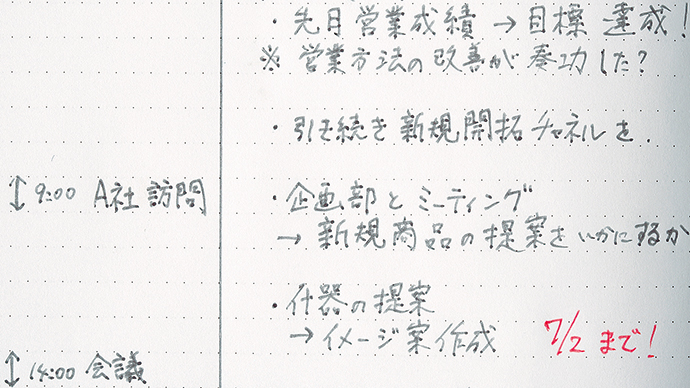 ・先月営業成績→目標達成!
※営業方法の改善が奏功した?
・引き続き新規開拓チャネルを.
↕9:00 A社訪問
・企画部とミーティング
→新規商品の提案をいかにするか
・什器の提案
→イメージ案作成 7/2まで!
↕14:00 会議